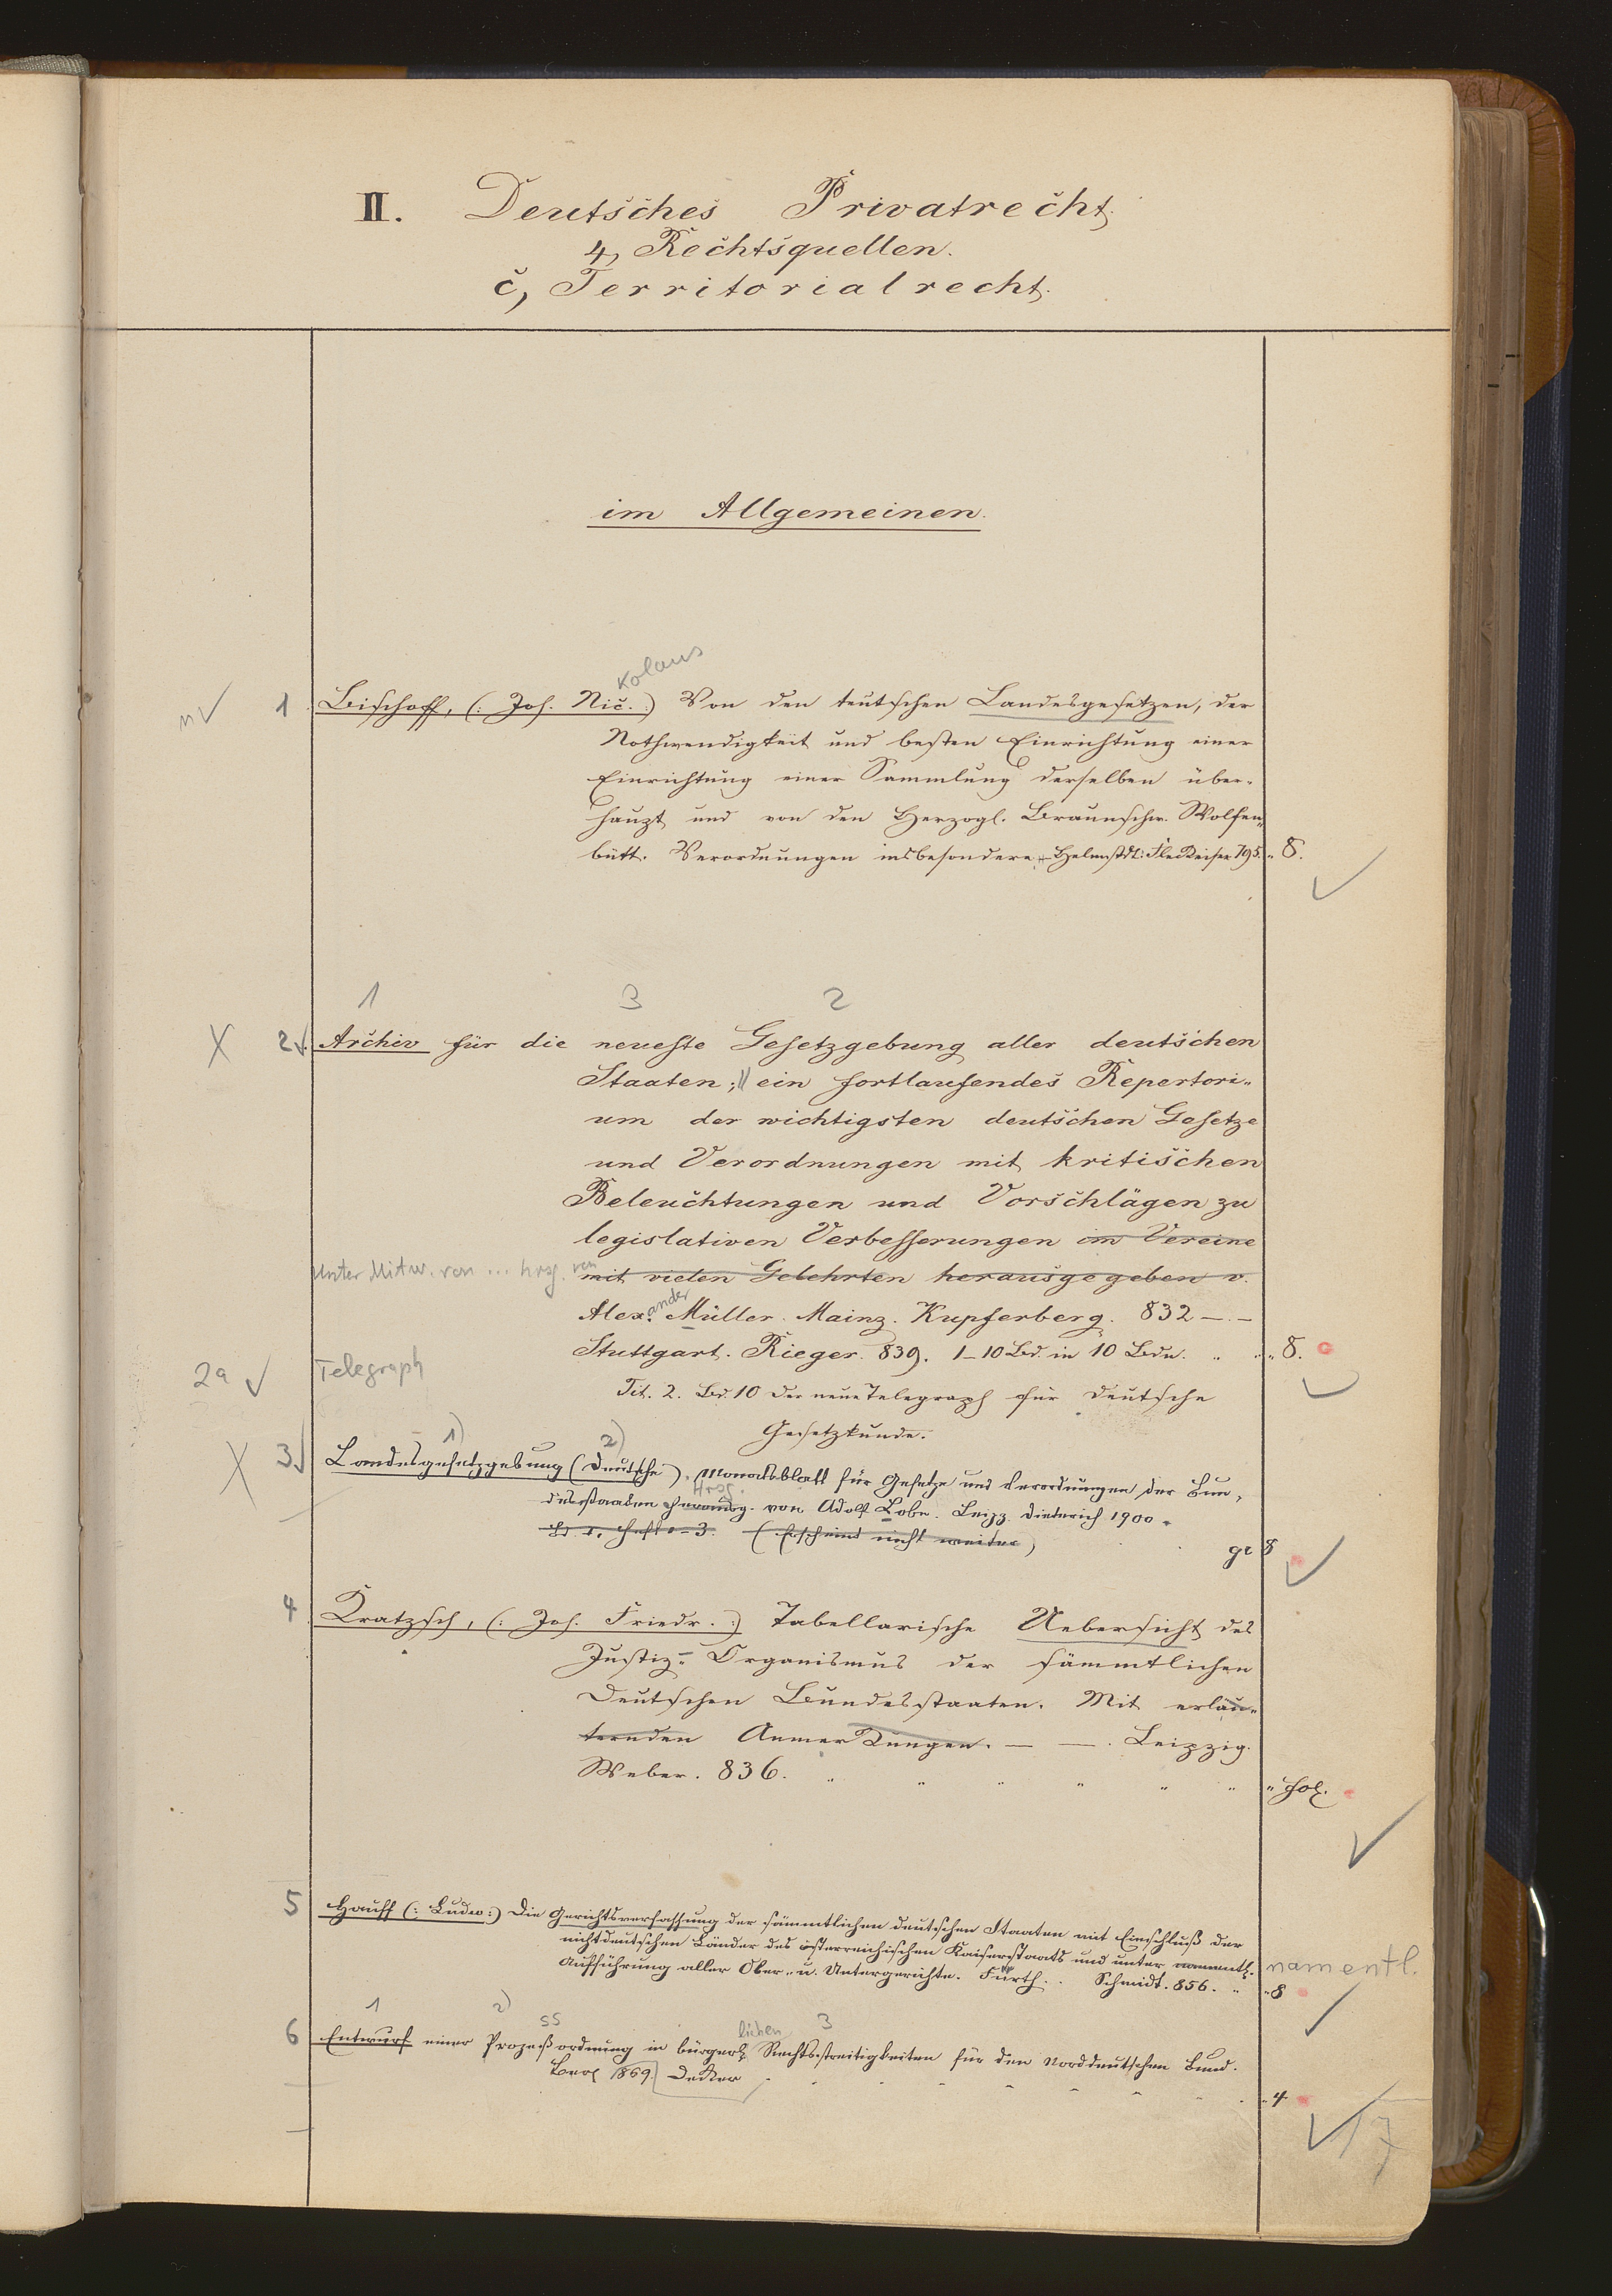 II. Deutsches Privatrecht.
4, Rechtsquellen.
c, Territorialrecht.
im Allgemeinen.
kolaus
n 1 Bischoff, (: Joh. Nic. :) Von den teutschen Landesgesetzen, der
Nothwendigkeit und besten Einrichtung einer
Einrichtung einer Sammlung derselben über-
haupt und von den Herzogl. Braunschw. Wolfen-
bütt. Verordnungen insbesondere. Helmstdt: Fleckeisen 795. 8.
1 3 2
X 2 Archiv für die neueste Gesetzgebung aller deutschen
Staaten; ein fortlaufendes Repertori-
um der wichtigsten deutschen Gesetze
und Verordnungen mit kritischen
Beleuchtungen und Vorschlägen zu
legislativen Verbesserungen im Vereine
Unter Mitw. von ... hrsg. von
mit vielen Gelehrten herausgegeben v.
ander
Alex. Müller. Mainz. Kupferberg. 832 — . —
Stuttgart. Rieger. 839. 1–10 Bd. in 10 Bdn. 8.
2a Telegraph
Tit. 2. Bd. 10 Der neue Telegraph für deutsche
Gesetzkunde.
1) 2)
X 3 Landesgesetzgebung (Deutsche). Monatsblatt für Gesetze und Verordnungen der Bun-
Hrsg.
desstaaten herausg. von Adolf Lobe. Leipz. Dieterich 1900
Bd. 1, Heft 1–3. (Erscheint nicht weiter) gr 8
4 Kratzsch, (: Joh. Friedr. :) Tabellarische Uebersicht des
Justiz-Organismus der sämmtlichen
Deutschen Bundesstaaten. Mit erläu-
ternden Anmerkungen. — — . Leipzig.
Weber. 836. fol.
5 Hauff (: Ludw :) Die Gerichtsverfassung der sämmtlichen deutschen Staaten mit Einschluß der
nichtdeutschen Länder des österreichischen Kaiserstaats und unter namentl. namentl.
Aufführung aller Ober- u. Untergerichte. Fürth. Schmidt. 856. 8
1 2) ss lichen 3
6 Entwurf einer Prozeßordnung in bürgerl. Rechtsstreitigkeiten für den Norddeutschen Bund.
Berl 1869. Decker 4
17